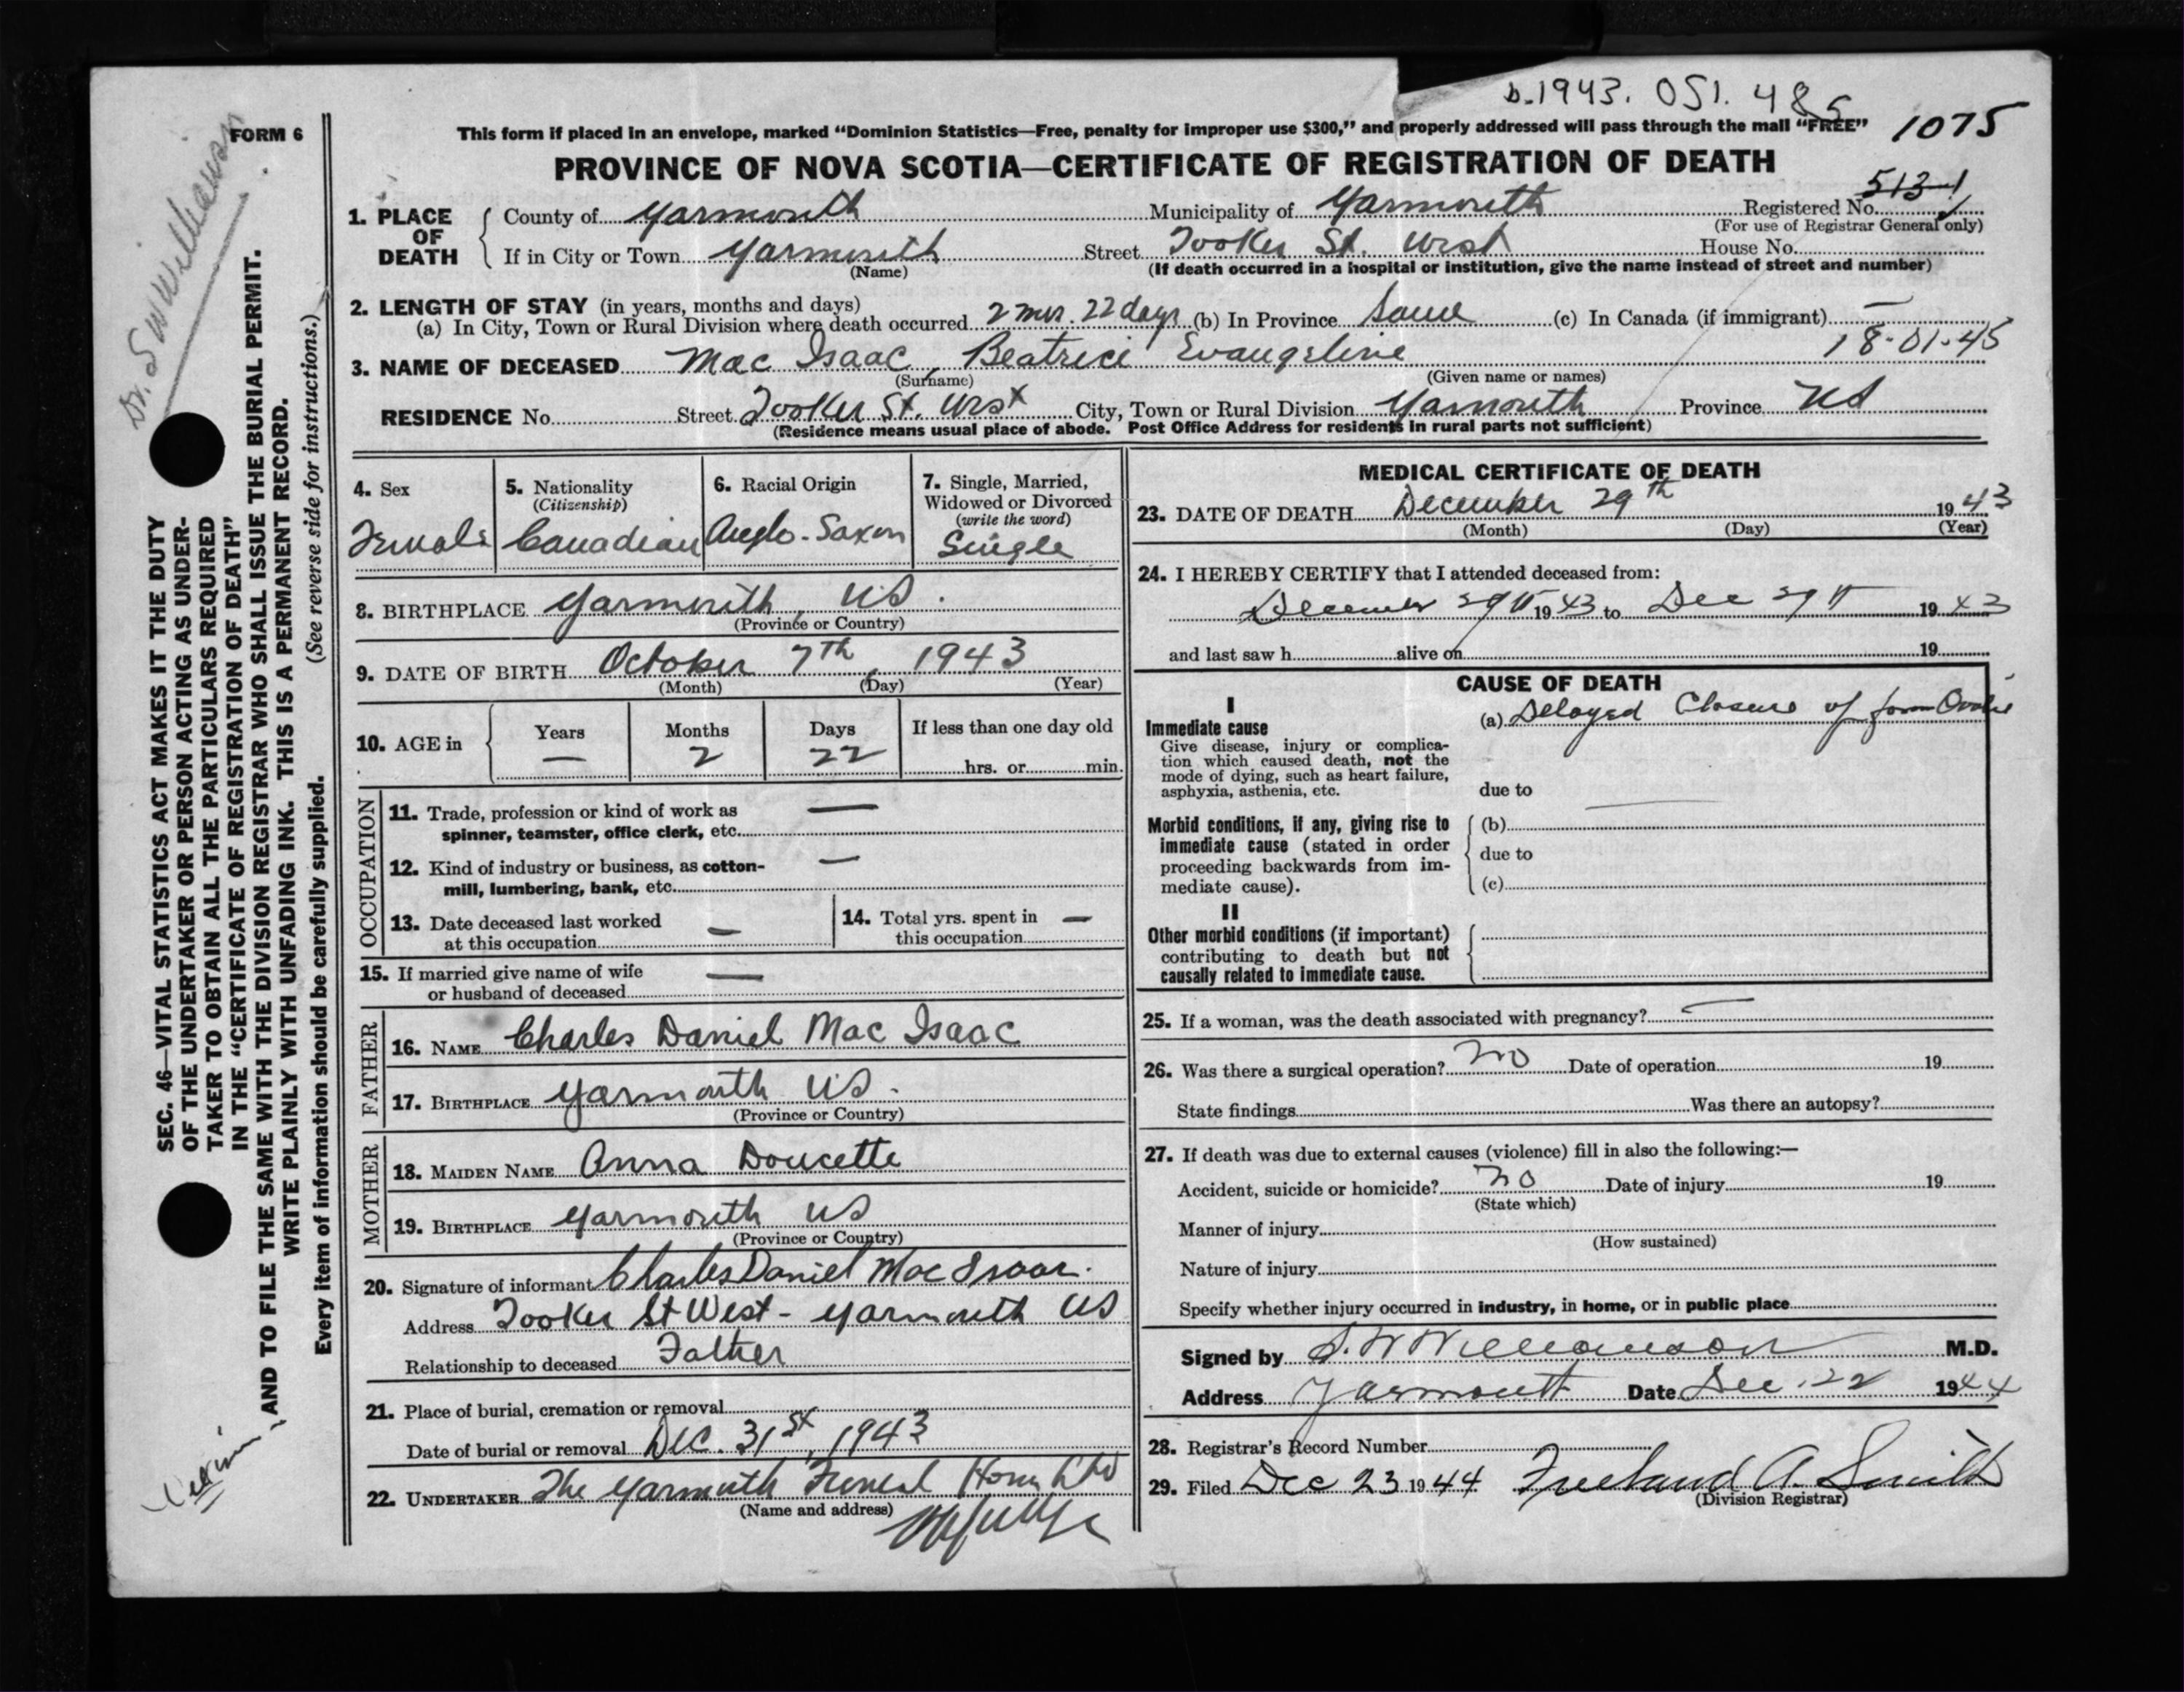 b.1943. 051. 485
1075
FORM 6
This form if placed in an envelope, marked "Dominion Statistics—Free, penalty for improper use $300," and properly addressed will pass through the mail "FREE"
PROVINCE OF NOVA SCOTIA—CERTIFICATE OF REGISTRATION OF DEATH
513-1
1. PLACE OF DEATH County of Yarmouth Municipality of Yarmouth Registered No.
(For use of Registrar General only)
If in City or Town Yarmouth Street Tooker St. West House No.
(Name) (If death occurred in a hospital or institution, give the name instead of street and number)
2. LENGTH OF STAY (in years, months and days)
(a) In City, Town or Rural Division where death occurred 2 mos. 22 days (b) In Province Same (c) In Canada (if immigrant) —
18-01-45
3. NAME OF DECEASED Mac Isaac, Beatrice Evangeline
(Surname) (Given name or names)
RESIDENCE No. Street Tooker St. West City, Town or Rural Division Yarmouth Province NS
(Residence means usual place of abode. Post Office Address for residents in rural parts not sufficient)
4. Sex
Female
5. Nationality
(Citizenship)
Canadian
6. Racial Origin
Anglo-Saxon
7. Single, Married,
Widowed or Divorced
(write the word)
Single
8. BIRTHPLACE Yarmouth, NS.
(Province or Country)
9. DATE OF BIRTH October 7th, 1943
(Month) (Day) (Year)
10. AGE in
Years Months Days If less than one day old
— 2 22
hrs. or min.
OCCUPATION
11. Trade, profession or kind of work as —
spinner, teamster, office clerk, etc.
12. Kind of industry or business, as cotton- —
mill, lumbering, bank, etc.
13. Date deceased last worked
at this occupation —
14. Total yrs. spent in —
this occupation
15. If married give name of wife —
or husband of deceased
FATHER
16. NAME Charles Daniel Mac Isaac
17. BIRTHPLACE Yarmouth NS.
(Province or Country)
MOTHER
18. MAIDEN NAME Anna Doucette
19. BIRTHPLACE Yarmouth NS
(Province or Country)
20. Signature of informant Charles Daniel Mac Isaac.
Address Tooker St West - Yarmouth NS
Relationship to deceased Father
21. Place of burial, cremation or removal
Date of burial or removal Dec. 31st, 1943
22. UNDERTAKER The Yarmouth Funeral Home Ltd
(Name and address)
MEDICAL CERTIFICATE OF DEATH
23. DATE OF DEATH December 29th 1943
(Month) (Day) (Year)
24. I HEREBY CERTIFY that I attended deceased from:
December 29th 1943 to Dec 29th 1943
and last saw h alive on 19
CAUSE OF DEATH
I
Immediate cause
Give disease, injury or complica-
tion which caused death, not the
mode of dying, such as heart failure,
asphyxia, asthenia, etc.
(a) Delayed Closure of foram Ovale
due to
Morbid conditions, if any, giving rise to
immediate cause (stated in order
proceeding backwards from im-
mediate cause).
(b)
due to
(c)
II
Other morbid conditions (if important)
contributing to death but not
causally related to immediate cause.
25. If a woman, was the death associated with pregnancy? —
26. Was there a surgical operation? no Date of operation 19
State findings Was there an autopsy?
27. If death was due to external causes (violence) fill in also the following:—
Accident, suicide or homicide? no Date of injury 19
(State which)
Manner of injury
(How sustained)
Nature of injury
Specify whether injury occurred in industry, in home, or in public place
Signed by S. W Williamson M.D.
Address Yarmouth Date Dec 22 1944
28. Registrar's Record Number
29. Filed Dec 23 1944 Freeland A. Smith
(Division Registrar)
Dr. S W Williamson
SEC. 46—VITAL STATISTICS ACT MAKES IT THE DUTY
OF THE UNDERTAKER OR PERSON ACTING AS UNDER-
TAKER TO OBTAIN ALL THE PARTICULARS REQUIRED
IN THE "CERTIFICATE OF REGISTRATION OF DEATH"
AND TO FILE THE SAME WITH THE DIVISION REGISTRAR WHO SHALL ISSUE THE BURIAL PERMIT.
WRITE PLAINLY WITH UNFADING INK. THIS IS A PERMANENT RECORD.
(See reverse side for instructions.)
Every item of information should be carefully supplied.